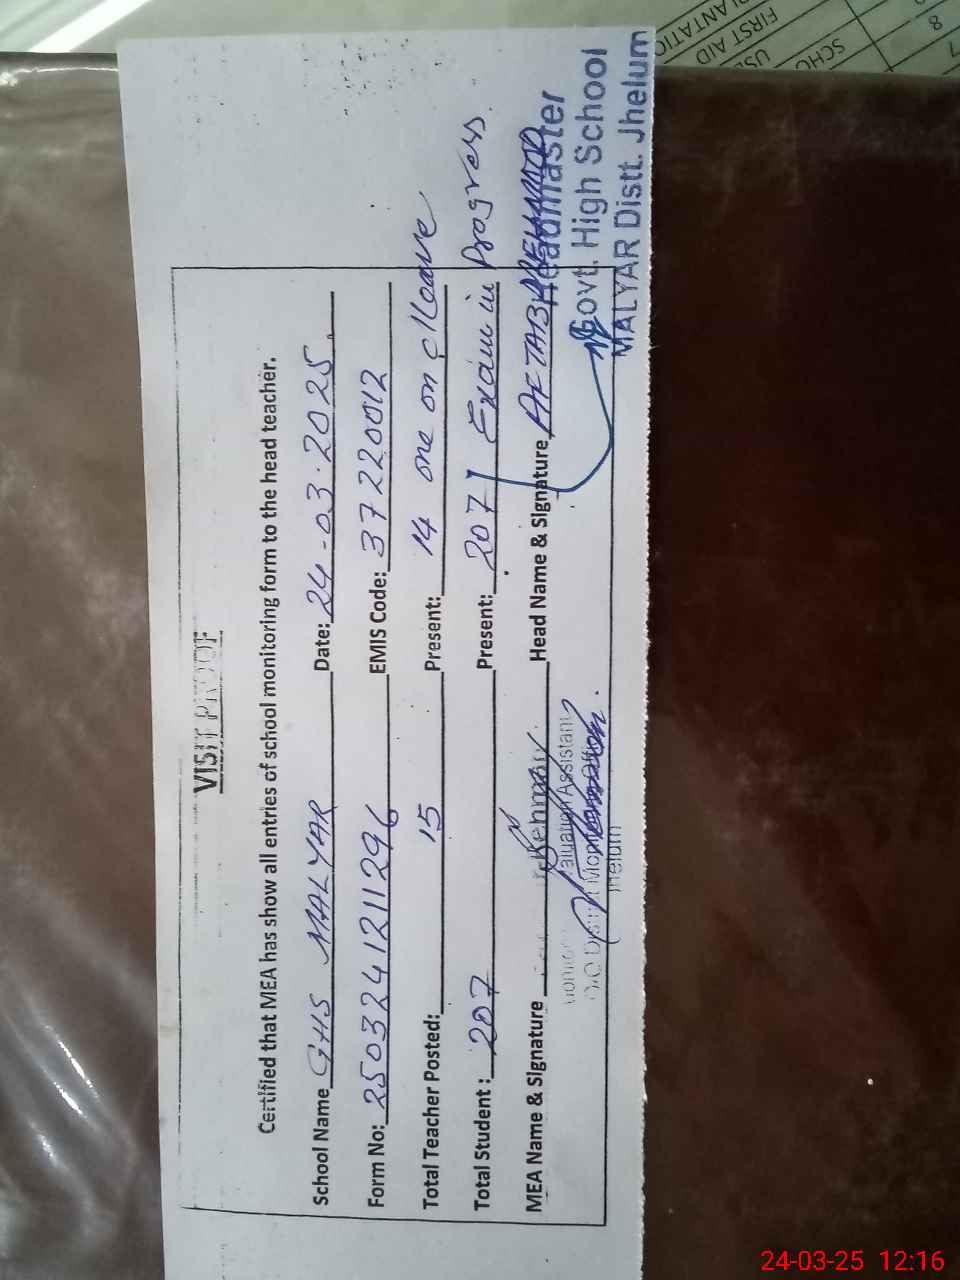 VISIT PROOF
Certified that MEA has show all entries of school monitoring form to the head teacher.
School Name GHS MALYAR Date: 24-03-2025
Form No: 2503241211296 EMIS Code: 37220012
Total Teacher Posted: 15 Present: 14 one on c/leave
Total Student : 207 Present: 207 Exam in Progress.
MEA Name & Signature Head Name & Signature AFTAB MEHMOOD
Headmaster
Govt. High School
MALYAR Distt. Jhelum
Evaluation Assistant
Jhelum
PLANTATION
FIRST AID
8
7
24-03-25 12:16